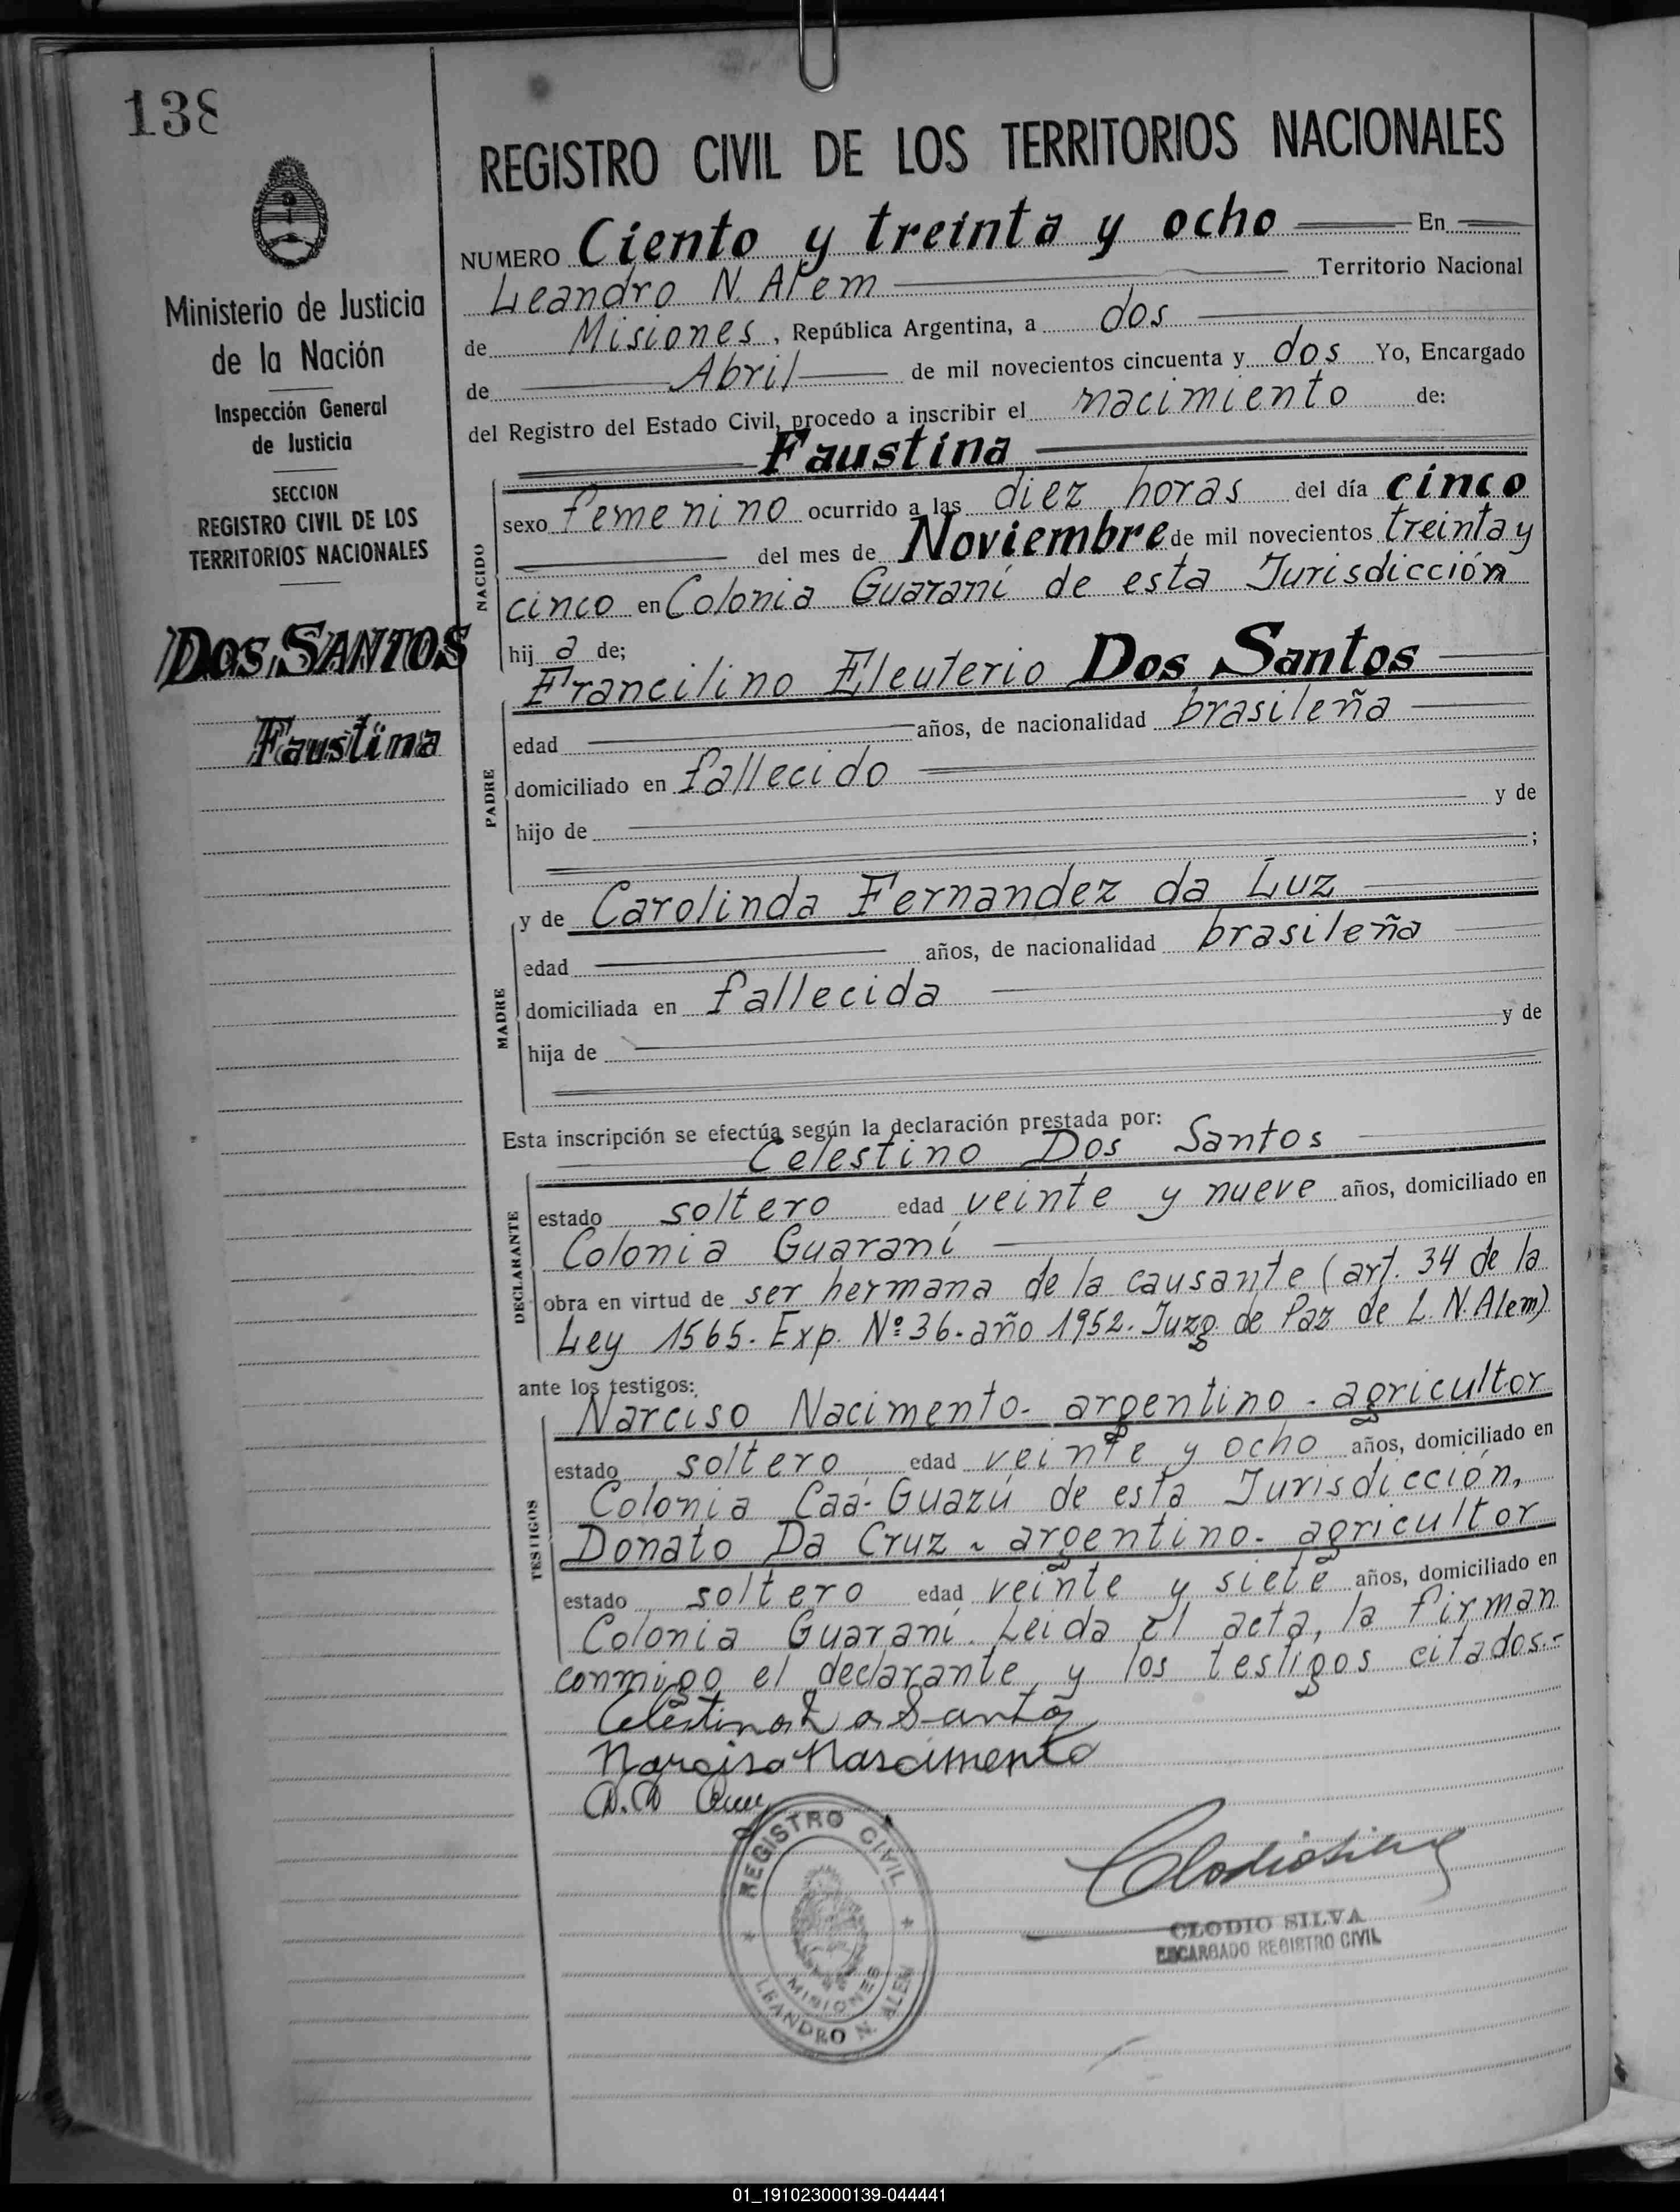 138
Ministerio de Justicia
de la Nación
Inspección General
de Justicia
SECCION
REGISTRO CIVIL DE LOS
TERRITORIOS NACIONALES
DOS SANTOS
Faustina
REGISTRO CIVIL DE LOS TERRITORIOS NACIONALES
NUMERO Ciento y treinta y ocho En
Leandro N. Alem Territorio Nacional
de Misiones, República Argentina, a dos
de Abril de mil novecientos cincuenta y dos Yo, Encargado
del Registro del Estado Civil, procedo a inscribir el nacimiento de:
Faustina
NACIDO
sexo femenino ocurrido a las diez horas del día cinco
del mes de Noviembre de mil novecientos treinta y
cinco en Colonia Guaraní de esta Jurisdicción
hij a de;
Francilino Eleuterio Dos Santos
PADRE
edad años, de nacionalidad brasileña
domiciliado en fallecido
hijo de y de
;
y de Carolinda Fernandez da Luz
MADRE
edad años, de nacionalidad brasileña
domiciliada en fallecida
hija de y de
Esta inscripción se efectúa según la declaración prestada por:
Celestino Dos Santos
DECLARANTE
estado soltero edad veinte y nueve años, domiciliado en
Colonia Guaraní
obra en virtud de ser hermana de la causante (art. 34 de la
Ley 1565. Exp. Nº 36. año 1952. Juzg. de Paz de L. N. Alem)
ante los testigos:
Narciso Nacimento - argentino - agricultor
TESTIGOS
estado soltero edad veinte y ocho años, domiciliado en
Colonia Caá-Guazú de esta Jurisdicción,
Donato Da Cruz - argentino - agricultor
estado soltero edad veinte y siete años, domiciliado en
Colonia Guaraní. Leida el acta, la firman
conmigo el declarante y los testigos citados.-
Celestino Dos Santos
Narciso Nascimento
REGISTRO CIVIL
MISIONES
LEANDRO N. ALEM
CLODIO SILVA
ENCARGADO REGISTRO CIVIL
01_191023000139-044441